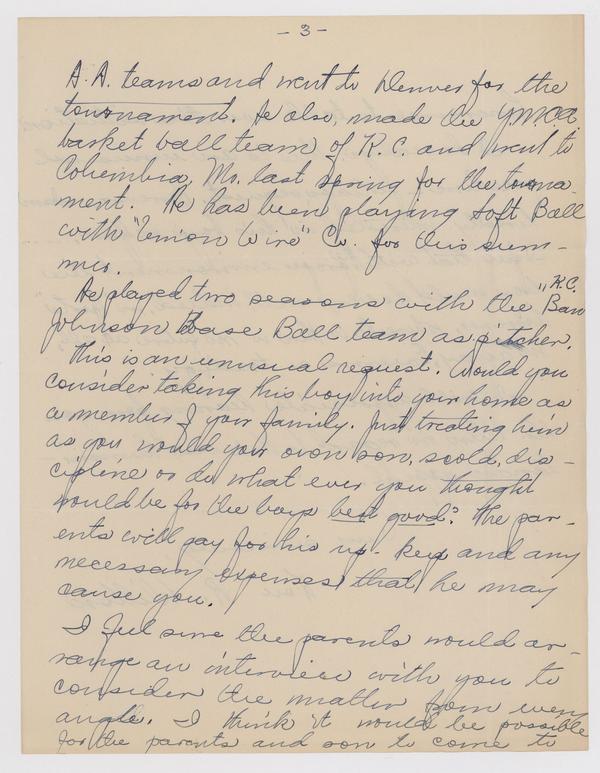 - 3 -
A. A. teams and went to Denver for the
tournament. He also, made the Y.M.C.A.
basket ball team of K. C. and went to
Columbia, Mo. last spring for the tourna-
ment. He has been playing Soft Ball
with "Union Wire" Co. for this sum-
mer.
He played two seasons with the "K.C. Ban
Johnson Base Ball team as pitcher.
This is an unusual request. Would you
consider taking this boy into your home as
a member of your family. Just treating him
as you would your own son, scold, dis-
cipline or do what ever you thought
would be for the boys best good? The par-
ents will pay for his up-keep and any
necessary expenses that he may
cause you.
I feel sure the parents would ar-
range an interview with you to
consider the matter from every
angle. I think it would be possible
for the parents and son to come to